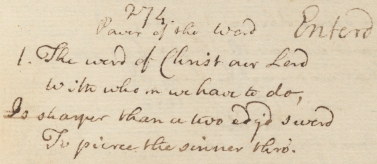 274
Power of the Word Enterd
1. The word of Christ our Lord
With whom we have to do,
Is sharper than a two edg'd sword
To pierce the sinner thro'.